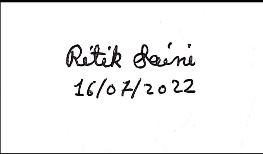 Ritik Saini
16/07/2022